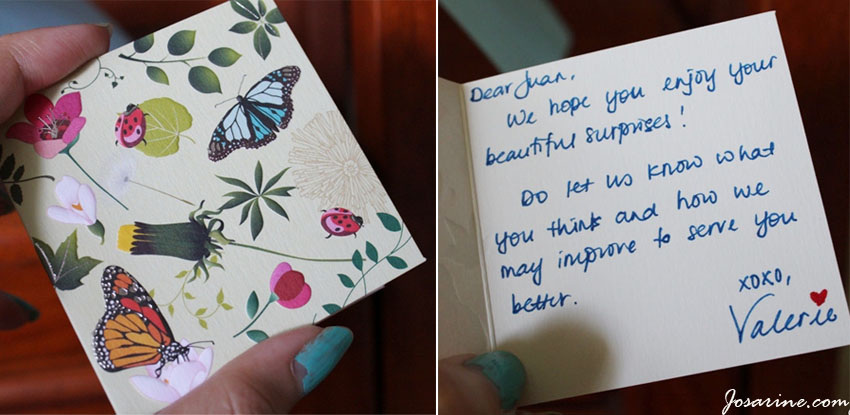 Dear Juan,
We hope you enjoy your
beautiful surprises!
Do let us know what
you think and how we
may improve to serve you
better.
xoxo,
Valerie
Josarine.com